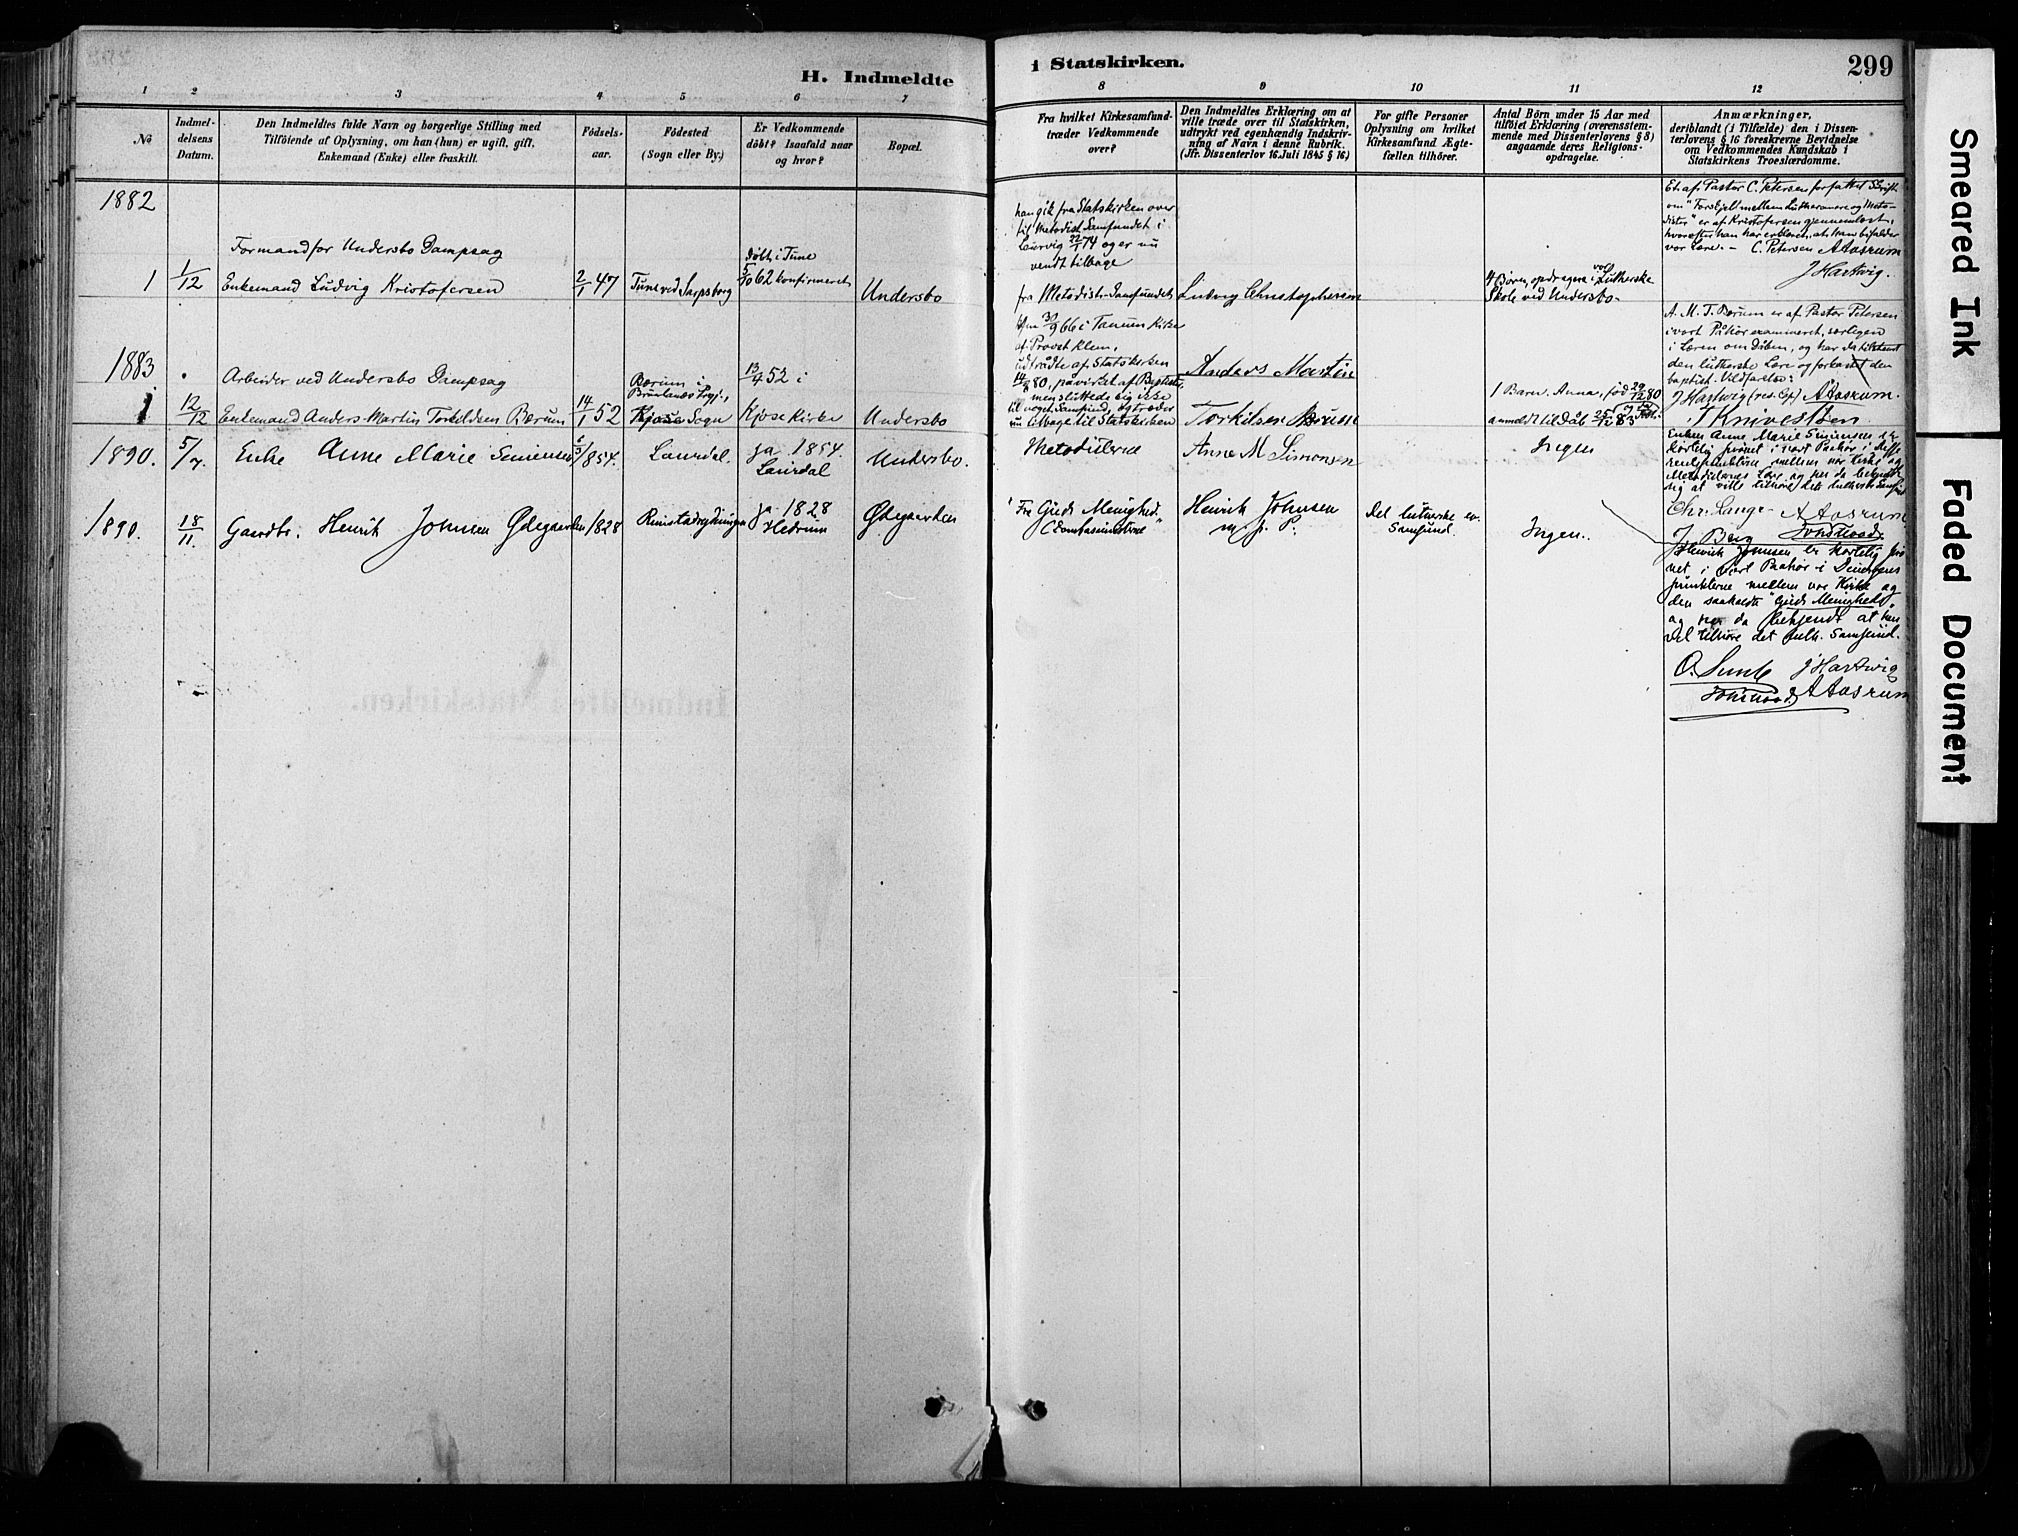 H. Indmeldte
i Statskirken.
299
1
2
3
4
5
6
7
8
9
10
11
12
No
Indmel-
delsens
Datum.
Den Indmeldtes fulde Navn og borgerlige Stilling med
Tilföiende af Oplysning, om han (hun) er ugift, gift,
Enkemand (Enke) eller fraskilt.
Födsels-
aar.
Födested
(Sogn eller By.)
Er Vedkommende
döbt? Isaafald naar
og hvor?
Bopæl.
Fra hvilket Kirkesamfund
træder Vedkommende
over?
Den Indmeldtes Erklæring om at
ville træde over til Statskirken,
udtrykt ved egenhændig Indskriv-
ning af Navn i denne Rubrik.
(Jfr. Dissenterlov 16 Juli 1845 § 16)
For gifte Personer
Oplysning om hvilket
Kirkesamfund Ægte-
fællen tilhörer.
Antal Börn under 15 Aar med
tilföiet Erklæring (overensstem-
mende med Dissenterlovens § 8)
angaaende deres Religions-
opdragelse.
Anmærkninger,
deriblandt (i Tilfælde) den i Dissen-
terlovens § 16 foreskrevne Bevidnelse
om Vedkommendes Kundskab i
Statskirkens Troeslærdomme.
1882
1
1/12
Formand for Undersbo Dampsag
Enkemand Ludvig Kristofersen
2/1 47
Tune ved Sarpsborg
Döbt i Tune
5/10 62 konfirmeret
Undersbo
han gik fra Statskirken over
til Metodist Samfundet i
Laurvig 22/1 74 og er nu
vendt tilbage
fra Metodist-Samfundet
Ludvig Christophersen
4 Børn, opdragne i vor Lutherske
Skole ved Undersbo.
Et af Pastor C. Petersen forfattet Skrift
om "Forskjell mellem Lutheranere og Meto-
dister" er af Kristofersen gjennemlæst,
hvorefter han har erklæret, at han bifalder
vor Lære. - C. Petersen A Aasrum
J Hartwig.
1883
1
12/12
Arbeider ved Undersbo Dampsag
Enkemand Anders Martin Torkildsen Bærum
14/1 52
Bærum i
Brunlanes Prgj.,
Kjose Sogn
13/4 52 i
Kjose Kirke
Undersbo
30/9 66 i Tanum Kirke
af Provst Klem,
udtraadte af Statskirken
14/8 80, paavirket af Baptister,
men sluttede sig ikke
til noget Samfund, og træder
nu tilbage til Statskirken
Anders Martin
Torkilsen Bærum
1 Barn. Anna, född 29/12 80
anmeldt til Daab 25/12 83
A. M. T. Bærum er af Pastor Petersen
i vort Påhör examineret, særligen
i Læren om Daaben, og har da tilstaaet
den lutherske Lære og forkastet den
baptist. Vildfarelse:
J Hartwig (res. Cap) A Aasrum.
T Knivestöen
1890.
5/7
Enke Anne Marie Simensen
6/5 1854.
Laurdal.
ja 1854.
Laurdal
Undersbo.
Metodisterne
Anne M Simonsen
Ingen
Enken Anne Marie Simensen er
kortelig prövet i vort Paahör i Diffe-
rentspunkterne mellem vor Kirke og
Metodisternes Lære og har da bekjendt
sig at ville tilhöre det lutherske Samfund
Chr: Lange - A Aasrum
J. Berg
1890.
18/11.
Gaardbr. Henrik Johnsen Ødegaarden
1828
ja 1828
Hedrum
Ødegaarden
"Fra Guds Menighed."
Henrik Johnsen
m. f. P.
Det lutherske ev.
Samfund.
Ingen.
Henrik Johnsen er kortelig prö-
vet i vort Paahör i Differens
punkterne mellem vor Kirke og
den saakaldte "Guds Menighed",
og har da bekjendt at han
vil tilhöre det luth. Samfund.
J Hartwig
A Aasrum
Smeared Ink
Faded Document